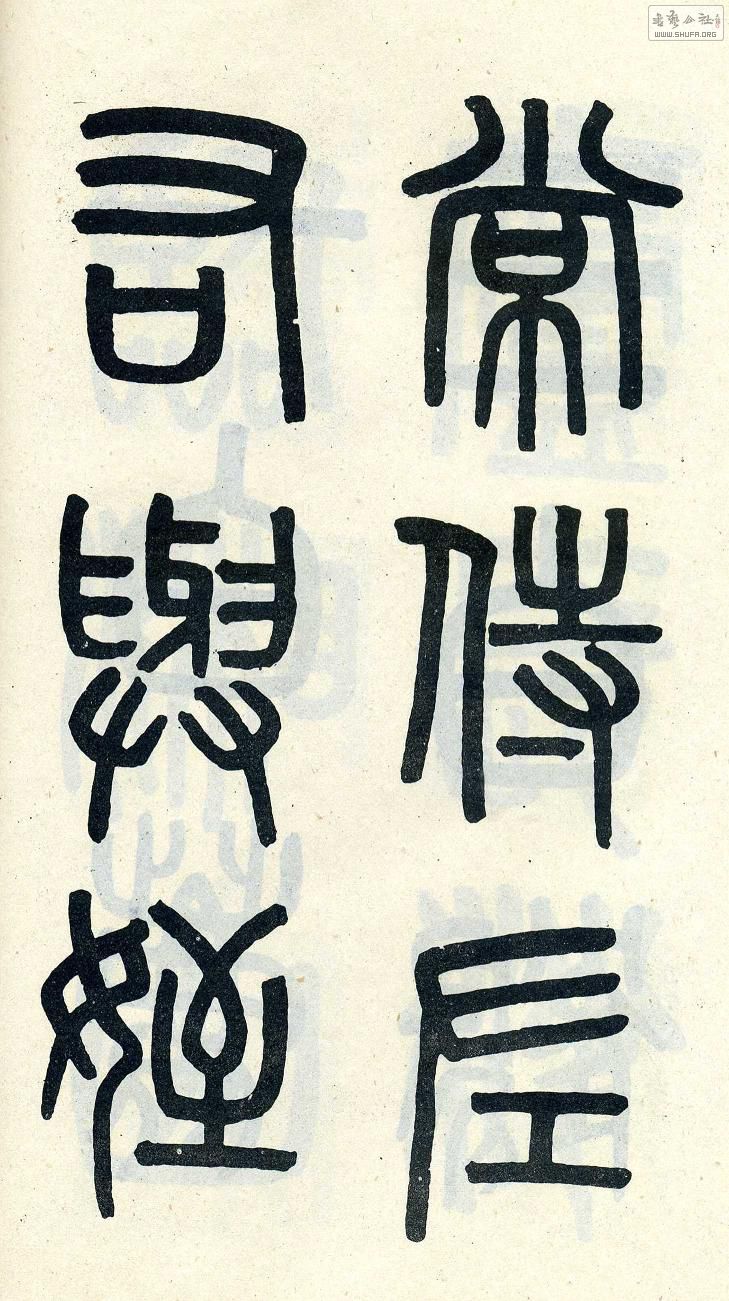 常侍左
右與姪
书艺公社
WWW.SHUFA.ORG